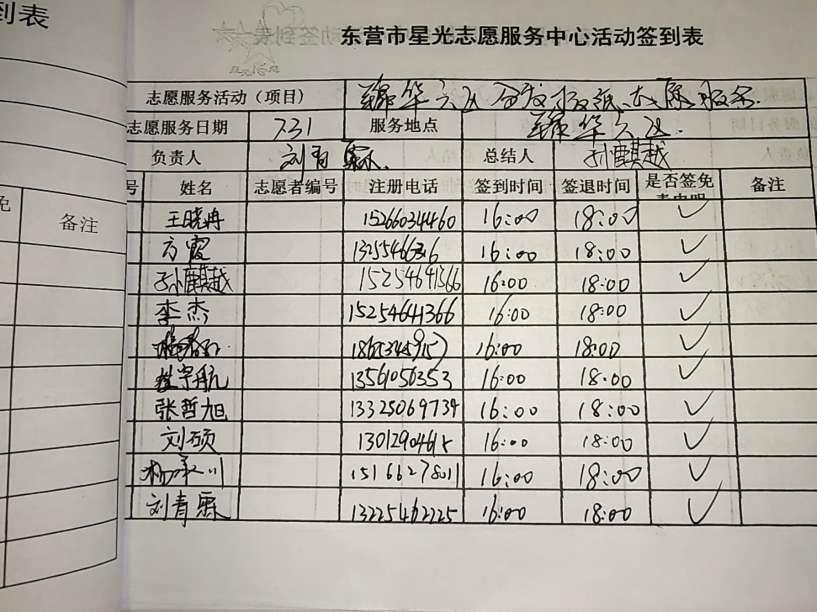 到表
备注
东营市星光志愿服务中心活动签到表
志愿服务活动（项目） 华六区分发报纸志愿服务
志愿服务日期 731 服务地点 华六区
负责人 刘青霖 总结人 孙麒越
号 姓名 志愿者编号 注册电话 签到时间 签退时间 是否签免 备注
王晓冉 15266034460 16:00 18:00 ✓
方霞 16:00 18:00 ✓
孙麒越 15254641366 16:00 18:00 ✓
李杰 15254641366 16:00 18:00 ✓
16:00 18:00 ✓
宇航 13561056353 16:00 18:00 ✓
张哲旭 13325069734 16:00 18:00 ✓
刘硕 16:00 18:00 ✓
杨承川 15166278011 16:00 18:00 ✓
刘青霖 13225462225 16:00 18:00 ✓